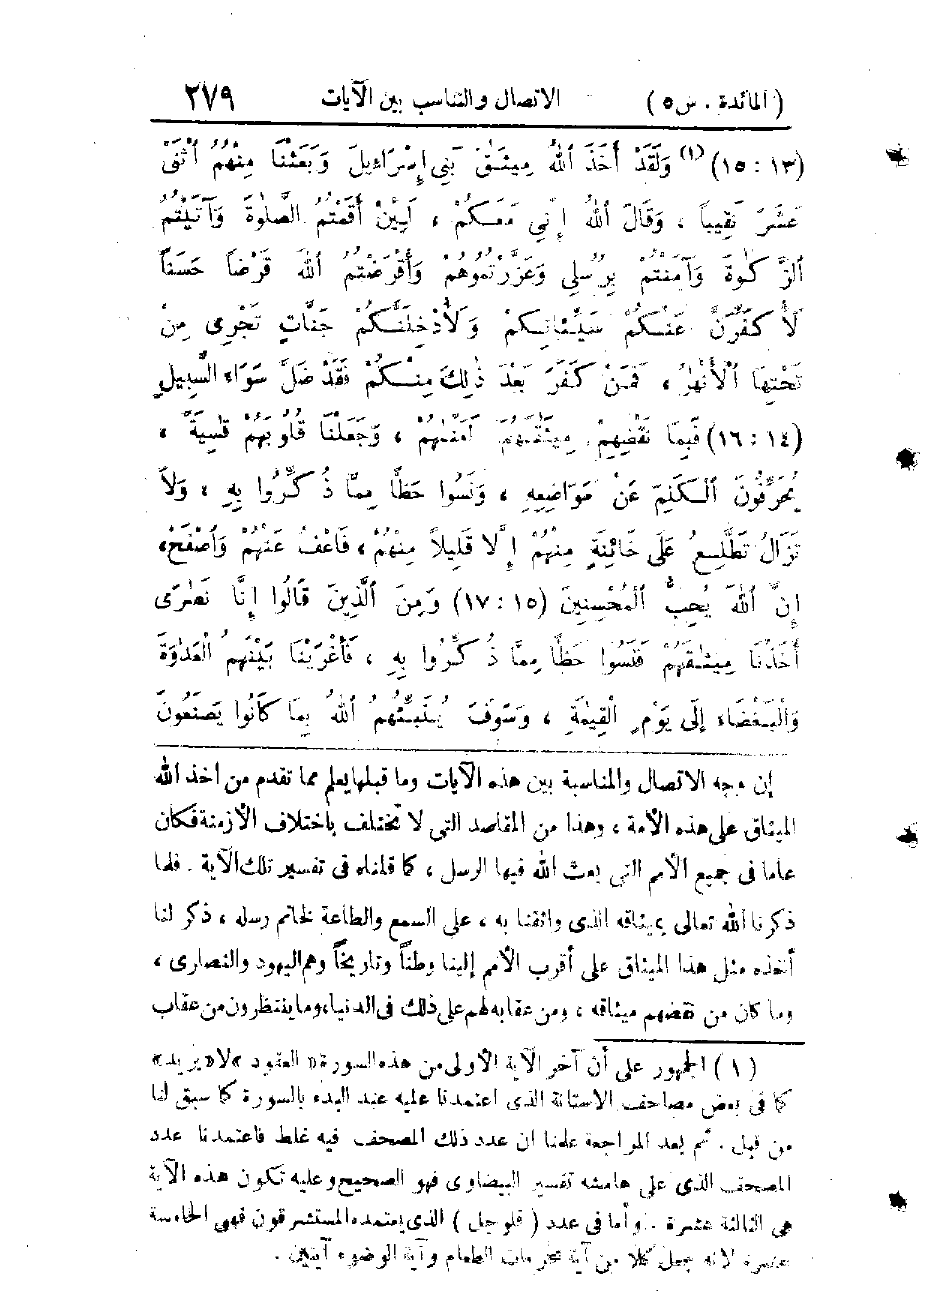 ( المائدة . س ٥ ) الاتصال والتناسب بين الآيات ٢٧٩
(١٣ : ١٥) (١) وَلَقَدْ أَخَذَ اللهُ مِيثَٰقَ بَنِي إِسْرَاءِيلَ وَبَعَثْنَا مِنْهُمُ اثْنَىْ
عَشَرَ نَقِيباً ، وَقَالَ اللهُ إِنِّي مَعَكُمْ ، لَئِنْ أَقَمْتُمُ الصَّلَوٰةَ وَآتَيْتُمُ
الزَّكَوٰةَ وَآمَنْتُمْ بِرُسُلِي وَعَزَّرْتُمُوهُمْ وَأَقْرَضْتُمُ اللهَ قَرْضًا حَسَنًا
لَأُكَفِّرَنَّ عَنْكُمْ سَيِّئَاتِكُمْ وَلَأُدْخِلَنَّكُمْ جَنَّاتٍ تَجْرِى مِنْ
تَحْتِهَا الْأَنْهَٰرُ ، فَمَنْ كَفَرَ بَعْدَ ذَٰلِكَ مِنْكُمْ فَقَدْ ضَلَّ سَوَاءَ السَّبِيلِ
(١٤ : ١٦) فَبِمَا نَقْضِهِمْ مِيثَٰقَهُمْ لَعَنَّٰهُمْ ، وَجَعَلْنَا قُلُوبَهُمْ قَٰسِيَةً ،
يُحَرِّفُونَ الْكَلِمَ عَنْ مَوَاضِعِهِ ، وَنَسُوا حَظًّا مِمَّا ذُكِّرُوا بِهِ ، وَلَا
تَزَالُ تَطَّلِعُ عَلَى خَائِنَةٍ مِنْهُمْ إِلَّا قَلِيلاً مِنْهُمْ ، فَاعْفُ عَنْهُمْ وَاصْفَحْ،
إِنَّ اللهَ يُحِبُّ الْمُحْسِنِينَ (١٥ : ١٧) وَمِنَ الَّذِينَ قَالُوا إِنَّا نَصَٰرَى
أَخَذْنَا مِيثَٰقَهُمْ فَنَسُوا حَظًّا مِمَّا ذُكِّرُوا بِهِ ، فَأَغْرَيْنَا بَيْنَهُمُ الْعَدَاوَةَ
وَالْبَغْضَاءَ إِلَى يَوْمِ الْقِيَٰمَةِ ، وَسَوْفَ يُنَبِّئُهُمُ اللهُ بِمَا كَانُوا يَصْنَعُونَ
إن وجه الاتصال والمناسبة بين هذه الآيات وما قبلها يعلم مما تقدم من أخذ الله
الميثاق على هذه الأمة ، وهذا من المقاصد التى لا تختلف باختلاف الأزمنة فكان
عاما فى جميع الأمم التى بعث الله فيها الرسل ، كما قلناه فى تفسير تلك الآية . فلما
ذكرنا الله تعالى بميثاقه الذى واثقنا به ، على السمع والطاعة لخاتم رسله ، ذكر لنا
أخذه مثل هذا الميثاق على أقرب الأمم إلينا وطناً وتاريخاً وهم اليهود والنصارى ،
وما كان من نقضهم ميثاقه ، ومن عقابه لهم على ذلك فى الدنيا، وما ينتظرون من عقاب
( ١ ) الجمهور على أن آخر الآية الأولى من هذه السورة « العقود » لا « يريد »
كما فى بعض مصاحف الاستانة الذى اعتمدنا عليه عند البدء بالسورة كما سبق لنا
من قبل . ثم بعد المراجعة علمنا ان عدد ذلك المصحف فيه غلط فاعتمدنا عدد
المصحف الذى على هامشه تفسير البيضاوى فهو الصحيح وعليه تكون هذه الآية
هى الثالثة عشرة . وأما فى عدد ( فلوجل ) الذى يعتمده المستشرقون فهى الخامسة
عشرة لانه جعل كلا من آية محرمات الطعام وآية الوضوء آيتين .